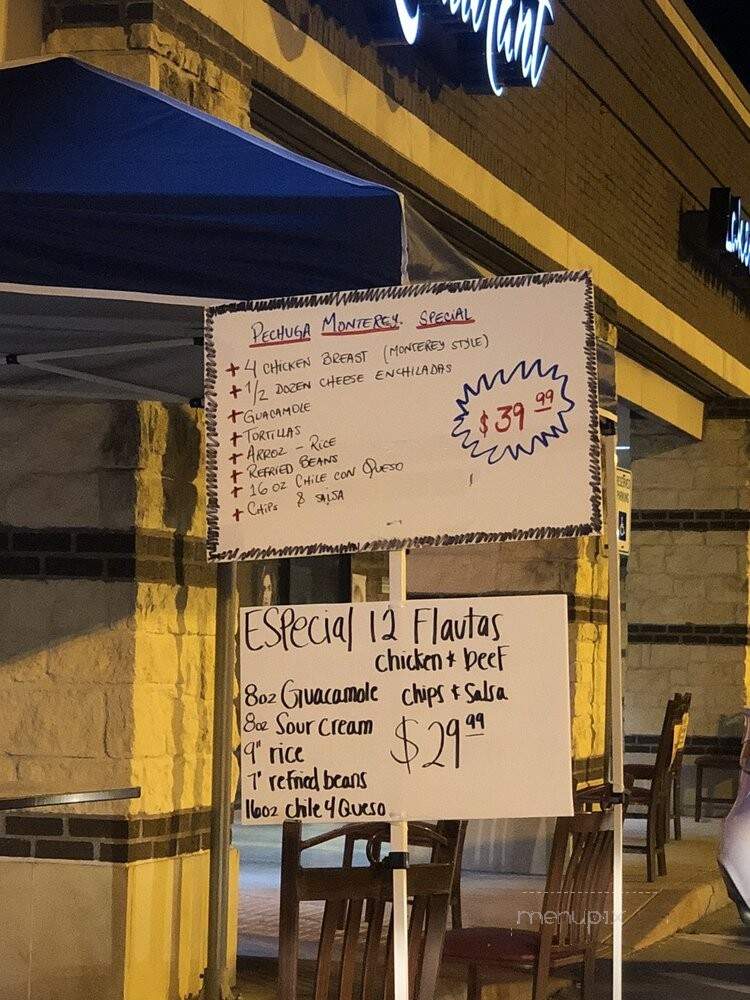 PECHUGA MONTEREY. SPECIAL
+ 4 CHICKEN BREAST (MONTEREY STYLE)
+ 1/2 DOZEN CHEESE ENCHILADAS
+ GUACAMOLE
+ TORTILLAS
+ ARROZ - RICE
+ REFRIED BEANS
+ 16 OZ CHILE CON QUESO
+ CHIPS & SALSA
$39.99
RESERVED
PARKING
ESPecial 12 Flautas
chicken + beef
8oz Guacamole chips + Salsa
8oz Sour Cream
$29.99
9" rice
7" refried beans
16oz chile 4 Queso
menupix